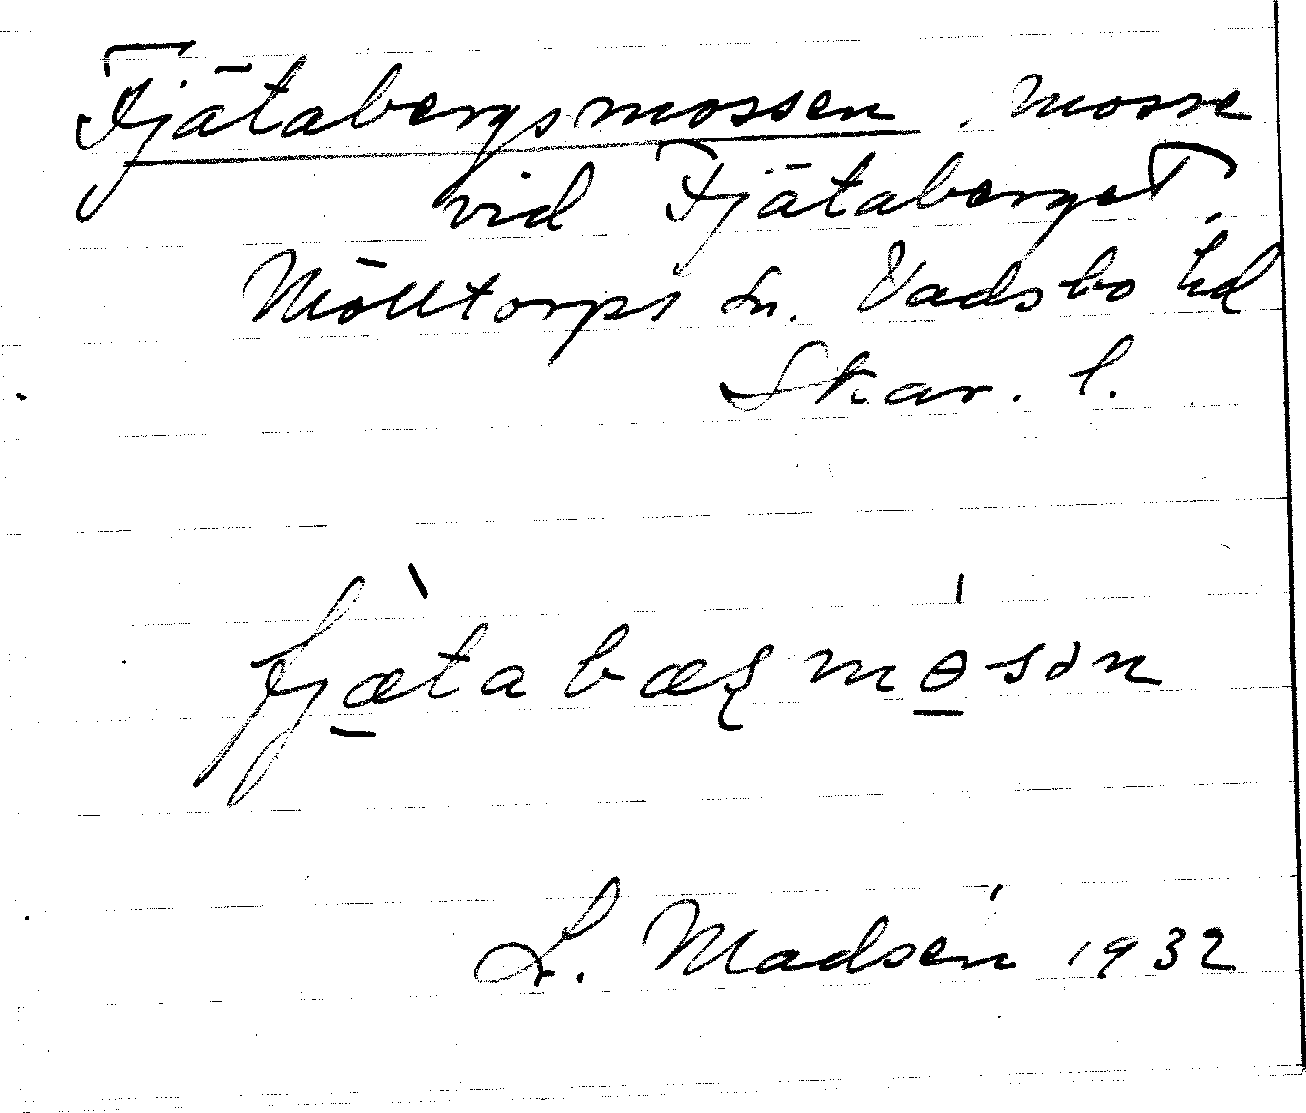 Fjätabergsmossen, mosse
vid Fjätaberget,
Mölltorps sn. Vadsbo hd
Skar. l.
fjæ̠̀tabæʂmɵ̠́sən
L. Madsén 1932